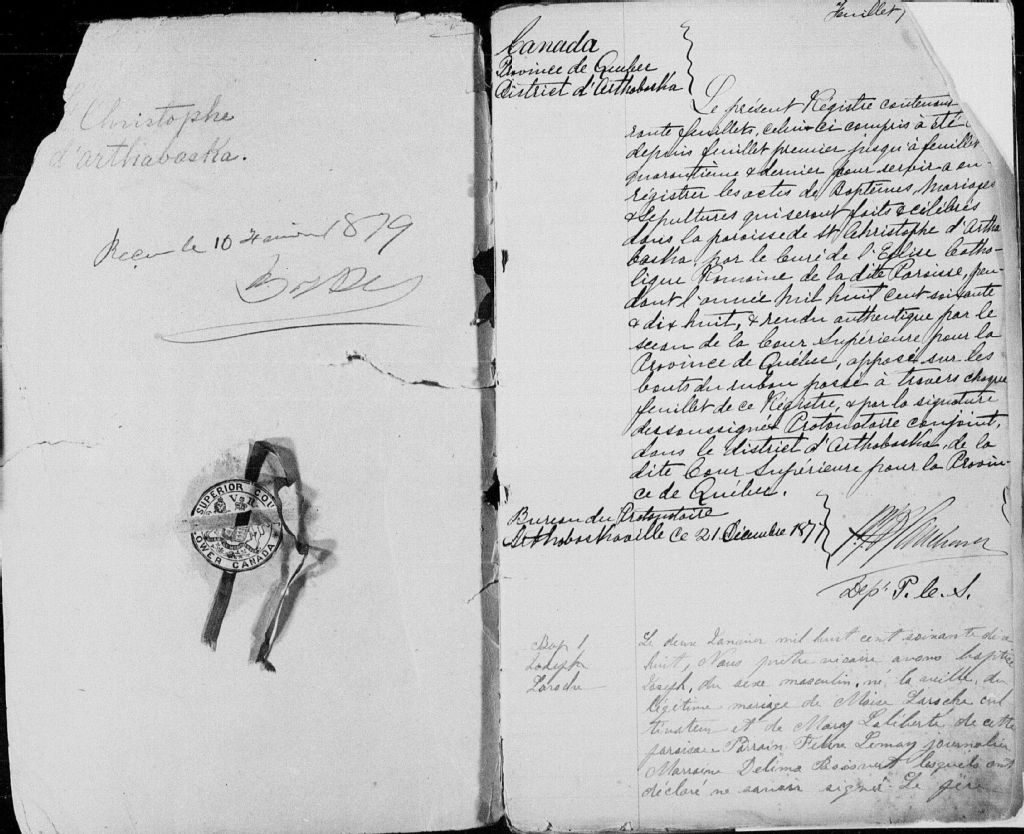 Christophe
d'arthabaska.
Reçu le 10 Janvier 1879
SUPERIOR COU
V R
LOWER CANADA
Feuillet 1
Canada
Province de Québec
District d'Arthabaska
Le présent Régistre contenant
rante feuillets, celui-ci compris à été
depuis feuillet premier jusqu'à feuillet
quarantième & dernier pour servir a en-
régistrer les actes de Baptêmes, Mariages
& Sépultures qui seront faits & célébrés
dans la paroisse de St Christophe d'Artha
baska par le Curé de l'Eglise Catho-
lique Romaine de la dite Paroisse, pen-
dant l'année Mil huit cent soixante
& dix huit, & rendu authentique par le
sceau de la Cour Supérieure pour la
Province de Québec, apposé sur les
bouts du ruban passé à travers chaque
feuillet de ce Régistre, & par la signature
des soussignés Protonotaire conjoint,
dans le district d'Arthabaska, de la
dite Cour Supérieure pour la Provin-
ce de Québec.
Bureau du Protonotaire
Arthabaskaville ce 21 Décembre 1877
Dep. P. C. S.
Bap 1
Joseph
Laroche
Le deux Janvier mil huit cent soixante dix
huit, Nous prêtre vicaire avons baptisé
Joseph, du sexe masculin, né la veille, du
légitime mariage de Moïse Laroche cul
tivateur et de Mary Laliberté de cette
paroisse Parrain Lemay journalier
Marraine Delima Boisvert lesquels ont
déclaré ne savoir signer. Le père